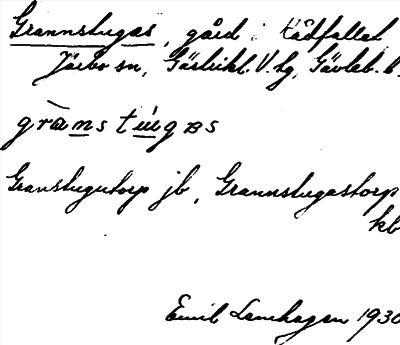 Grannstugas, gård i Rådfallet
Järbo sn, Gästrikl. V. tg, Gävleb. l.
grànstúgas
Granstugutorp jb, Grannstugastorp
kb
Emil Lamhagen 1930